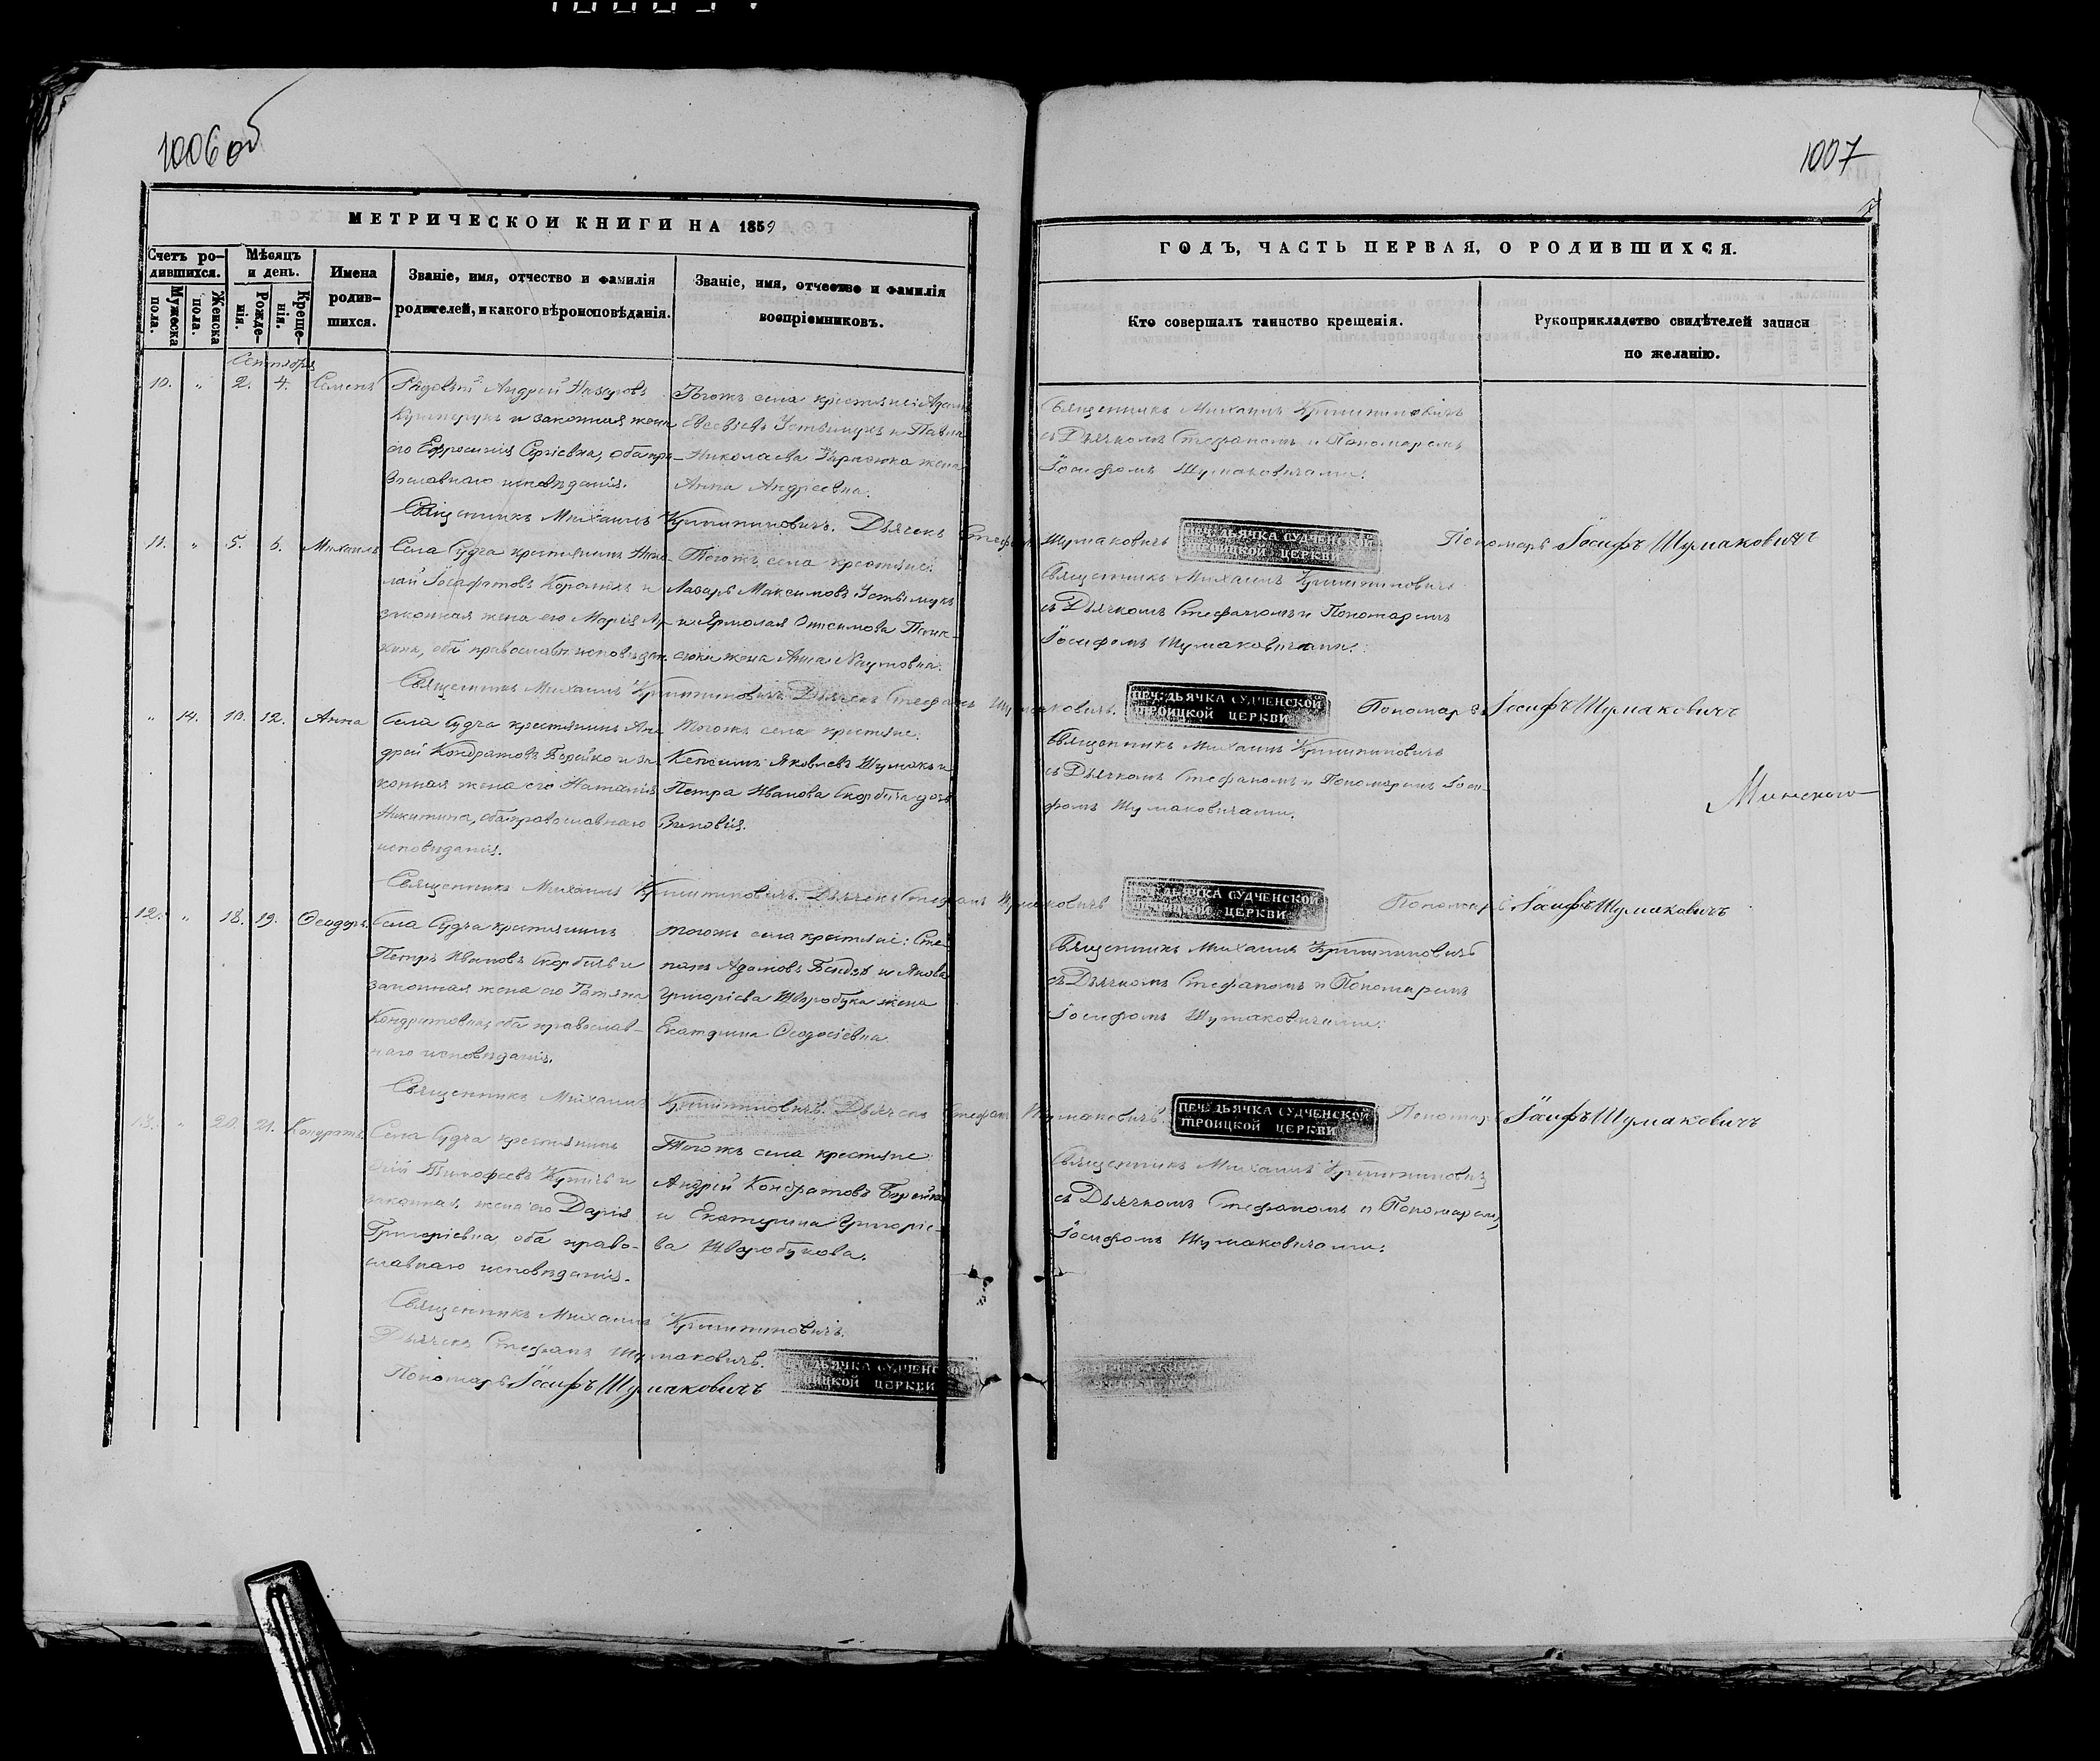 1006 об
1007
МЕТРИЧЕСКОЙ КНИГИ НА 1859
Счетъ ро-
дившихся.
Мужеска
пола.
Женска
пола.
Мѣсяцъ
и день.
Рожде-
нія.
Креще-
нія.
Имена
родив-
шихся.
Званіе, имя, отчество и фамилія
родителей, и какого вѣроисповѣданія.
Званіе, имя, отчество и фамилія
воспріемниковъ.
ГОДЪ, ЧАСТЬ ПЕРВАЯ, О РОДИВШИХСЯ.
Кто совершалъ таинство крещенія.
Рукоприкладство свидѣтелей записи
по желанію.
Сентябрь
10. „ 2. 4. Семенъ
Рядовый Андрей Назаровъ
и законная жена
его Ефросинія Сергіевна, оба пра-
вославнаго исповѣданія.
Тогожъ села крестьяне: Адамъ
Устимукъ и Павла
Николаева жена
Анна Андреевна.
Священникъ Михаилъ
съ Дьячкомъ Стефаномъ и Пономаремъ
Іосифомъ Шумаковичами.
Священникъ Михаилъ Дьячекъ Стефанъ Шумаковичъ
ПЕЧ: ДЬЯЧКА СУДЧЕНСКОЙ
ТРОИЦКОЙ ЦЕРКВИ
Пономарь Іосифъ Шумаковичъ
11. „ 5. 6. Михаилъ
Села Судча крестьянинъ Нико-
лай Іосафатовъ и
законная жена его Марія
оба православн. исповѣдан.
Тогожъ села крестьяне:
Лазарь Максимовъ Устимукъ
и Ярмолая Онисимова
жена Анна Наумовна.
Священникъ Михаилъ
съ Дьячкомъ Стефаномъ и Пономаремъ
Іосифомъ Шумаковичами.
Священникъ Михаилъ Дьячекъ Стефанъ Шумаковичъ.
ПЕЧ: ДЬЯЧКА СУДЧЕНСКОЙ
ТРОИЦКОЙ ЦЕРКВИ
Пономарь Іосифъ Шумаковичъ
„ 14. 10. 12. Анна
Села Судча крестьянинъ Ан-
дрей Кондратовъ Борейко и за-
конная жена его Наталія
Никитина, оба православнаго
исповѣданія.
Тогожъ села крестьяне:
Яковлевъ Шумакъ и
Петра Иванова Скорбича дочь
Зиновія.
Священникъ Михаилъ
съ Дьячкомъ Стефаномъ и Пономаремъ Іоси-
фомъ Шумаковичами.
Минскаго
Священникъ Михаилъ Дьячекъ Стефанъ Шумаковичъ
ПЕЧ: ДЬЯЧКА СУДЧЕНСКОЙ
ТРОИЦКОЙ ЦЕРКВИ
Пономарь Іосифъ Шумаковичъ
12. „ 18. 19. Ѳеодоръ
Села Судча крестьянинъ
Петръ Ивановъ Скорбичъ и
законная жена его Татьяна
Кондратовна, оба православ-
наго исповѣданія.
тогожъ села крестьяне: Сте-
панъ Адамовъ и Якова
Григоріева Шворобука жена
Екатерина Ѳеодосіевна.
Священникъ Михаилъ
съ Дьячкомъ Стефаномъ и Пономаремъ
Іосифомъ Шумаковичами.
Священникъ Михаилъ Дьячекъ Стефанъ Шумаковичъ.
ПЕЧ: ДЬЯЧКА СУДЧЕНСКОЙ
ТРОИЦКОЙ ЦЕРКВИ
Пономарь Іосифъ Шумаковичъ
13. „ 20. 21. Кондратъ
Села Судча крестьянинъ
Тимофеевъ и
законная жена его Дарія
Григоріевна оба право-
славнаго исповѣданія.
Тогожъ села крестьяне
Андрей Кондратовъ Борейко
и Екатерина Григоріе-
ва Шворобукова.
Священникъ Михаилъ
съ Дьячкомъ Стефаномъ и Пономаремъ
Іосифомъ Шумаковичами.
Священникъ Михаилъ
Дьячекъ Стефанъ Шумаковичъ.
Пономарь Іосифъ Шумаковичъ
ДЬЯЧКА СУДЧЕНСКОЙ
ТРОИЦКОЙ ЦЕРКВИ